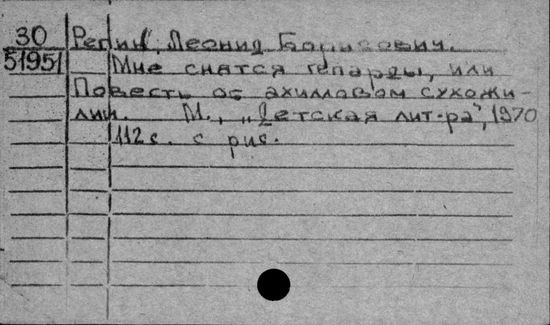 30
51951
Репин, Леонид Борисович.
Мне снятся гепарды, или
Повесть об ахилловом сухожи-
лии. М., „Детская лит-ра", 1970
112 с. с рис.